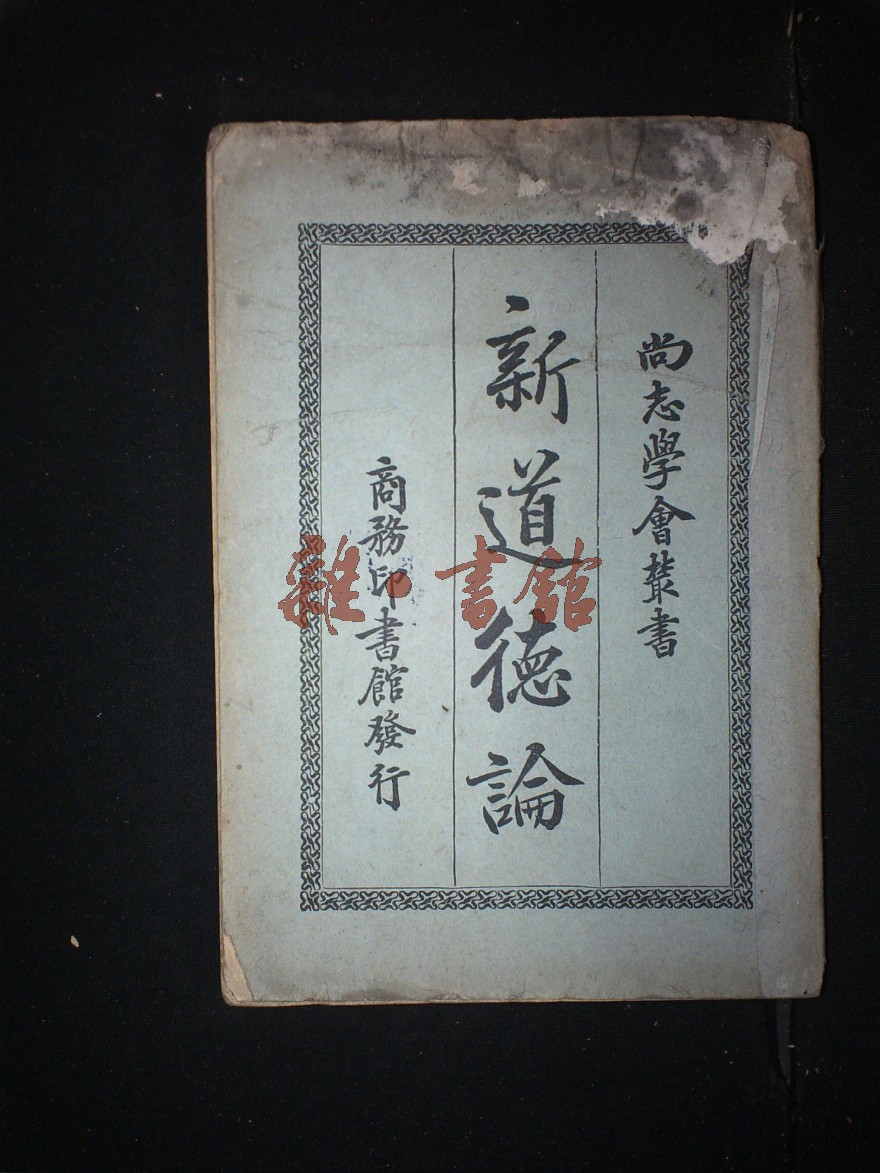 尚志學會叢書
新道德論
商務印書館發行
雜·書館